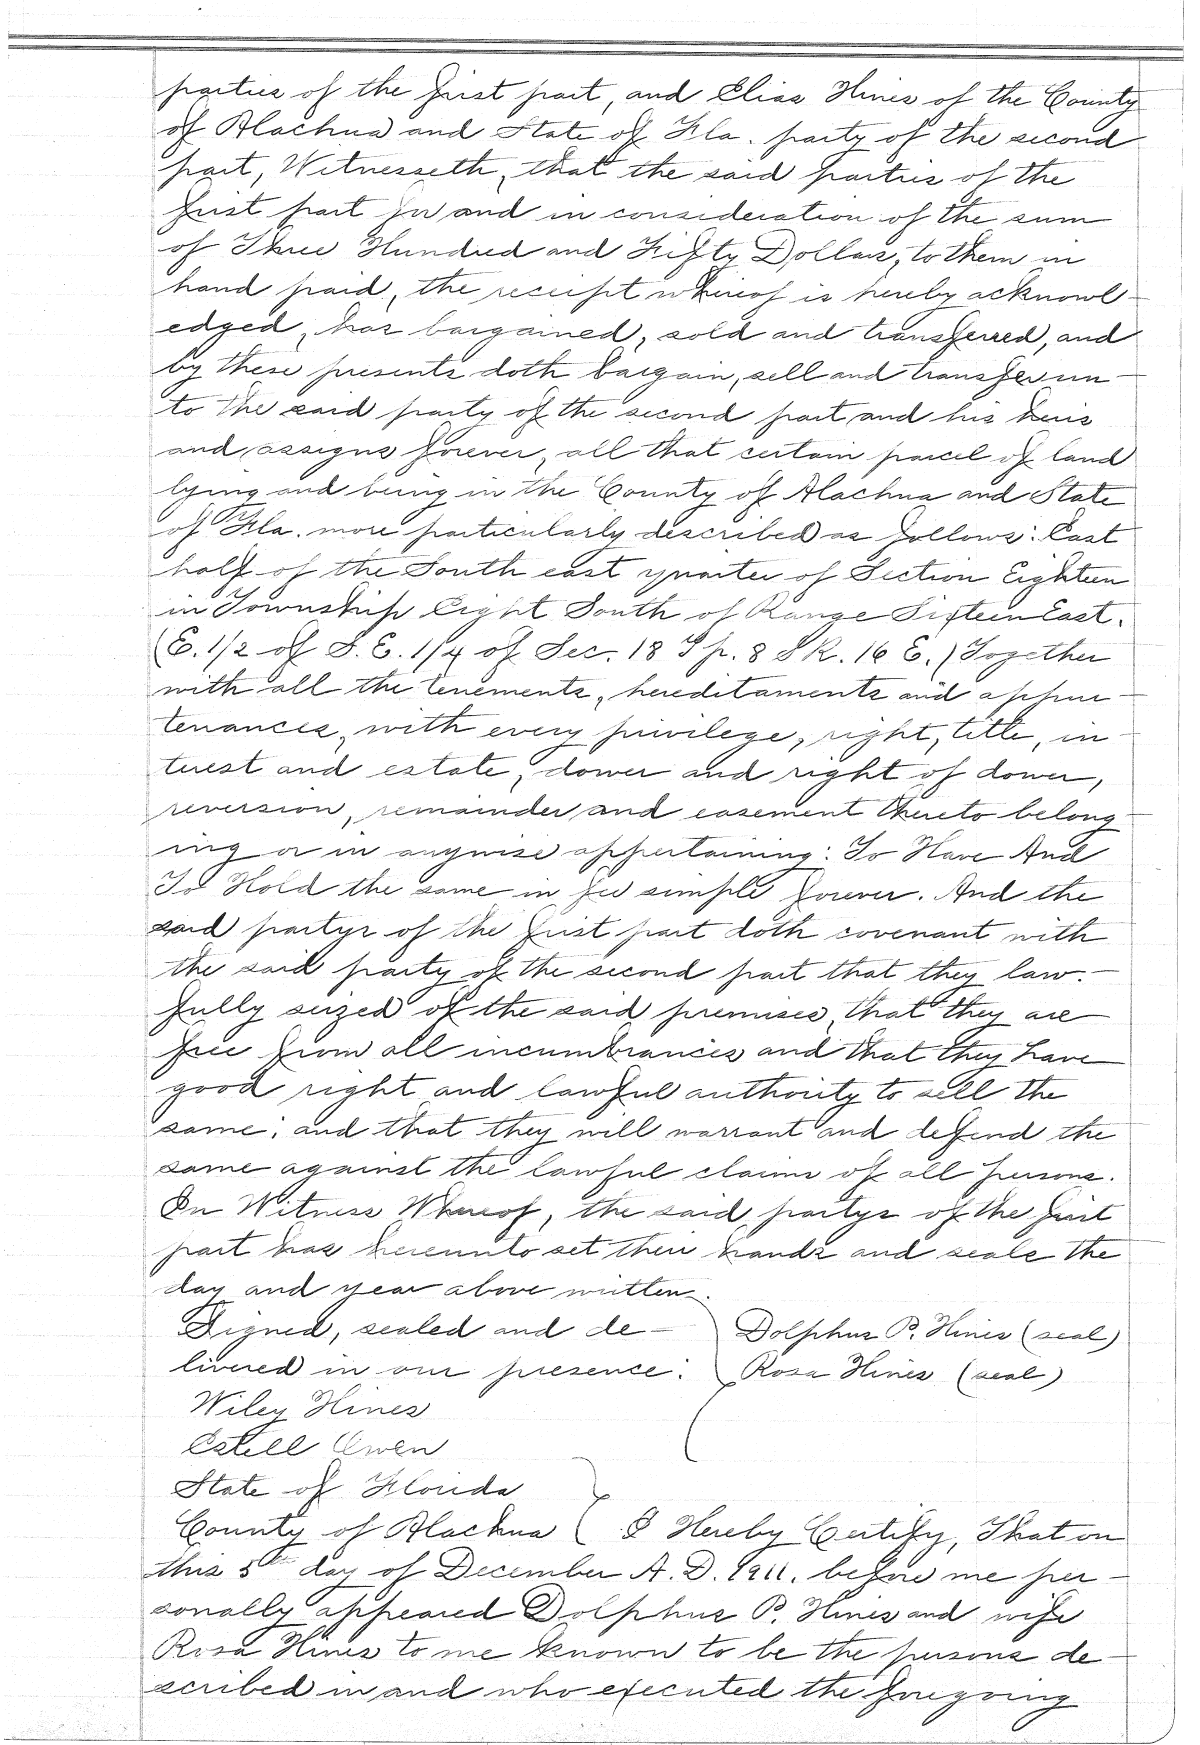 parties of the first part, and Elias Hines of the County
of Alachua and State of Fla. party of the second
part, Witnesseth, that the said parties of the
first part for and in consideration of the sum
of Three Hundred and Fifty Dollars, to them in
hand paid, the receipt whereof is hereby acknowl-
edged, has bargained, sold and transferred, and
by these presents doth bargain, sell and transfer un-
to the said party of the second part and his heirs
and assigns forever, all that certain parcel of land
lying and being in the County of Alachua and State
of Fla. more particularly described as follows: East
half of the South east quarter of Section Eighteen
in Township Eight South of Range Sixteen East.
(E. 1/2 of S. E. 1/4 of Sec. 18 Tp. 8 S R. 16 E.) Together
with all the tenements, hereditaments and appur-
tenances, with every privilege, right, title, in-
terest and estate, dower and right of dower,
reversion, remainder and easement thereto belong-
ing or in anywise appertaining: To Have And
To Hold the same in fee simple forever. And the
said partys of the first part doth covenant with
the said party of the second part that they law-
fully seized of the said premises, that they are
free from all incumbrances and that they have
good right and lawful authority to sell the
same; and that they will warrant and defend the
same against the lawful claims of all persons.
In Witness Whereof, the said partys of the first
part has hereunto set their hands and seals the
day and year above written.
Signed, sealed and de- Dolphus P. Hines (seal)
livered in our presence: Rosa Hines (seal)
Wiley Hines
Estell Owen
State of Florida
County of Alachua I Hereby Certify, That on
this 5th day of December A. D. 1911. before me per-
sonally appeared Dolphus P. Hines and wife
Rosa Hines to me known to be the persons de-
scribed in and who executed the foregoing